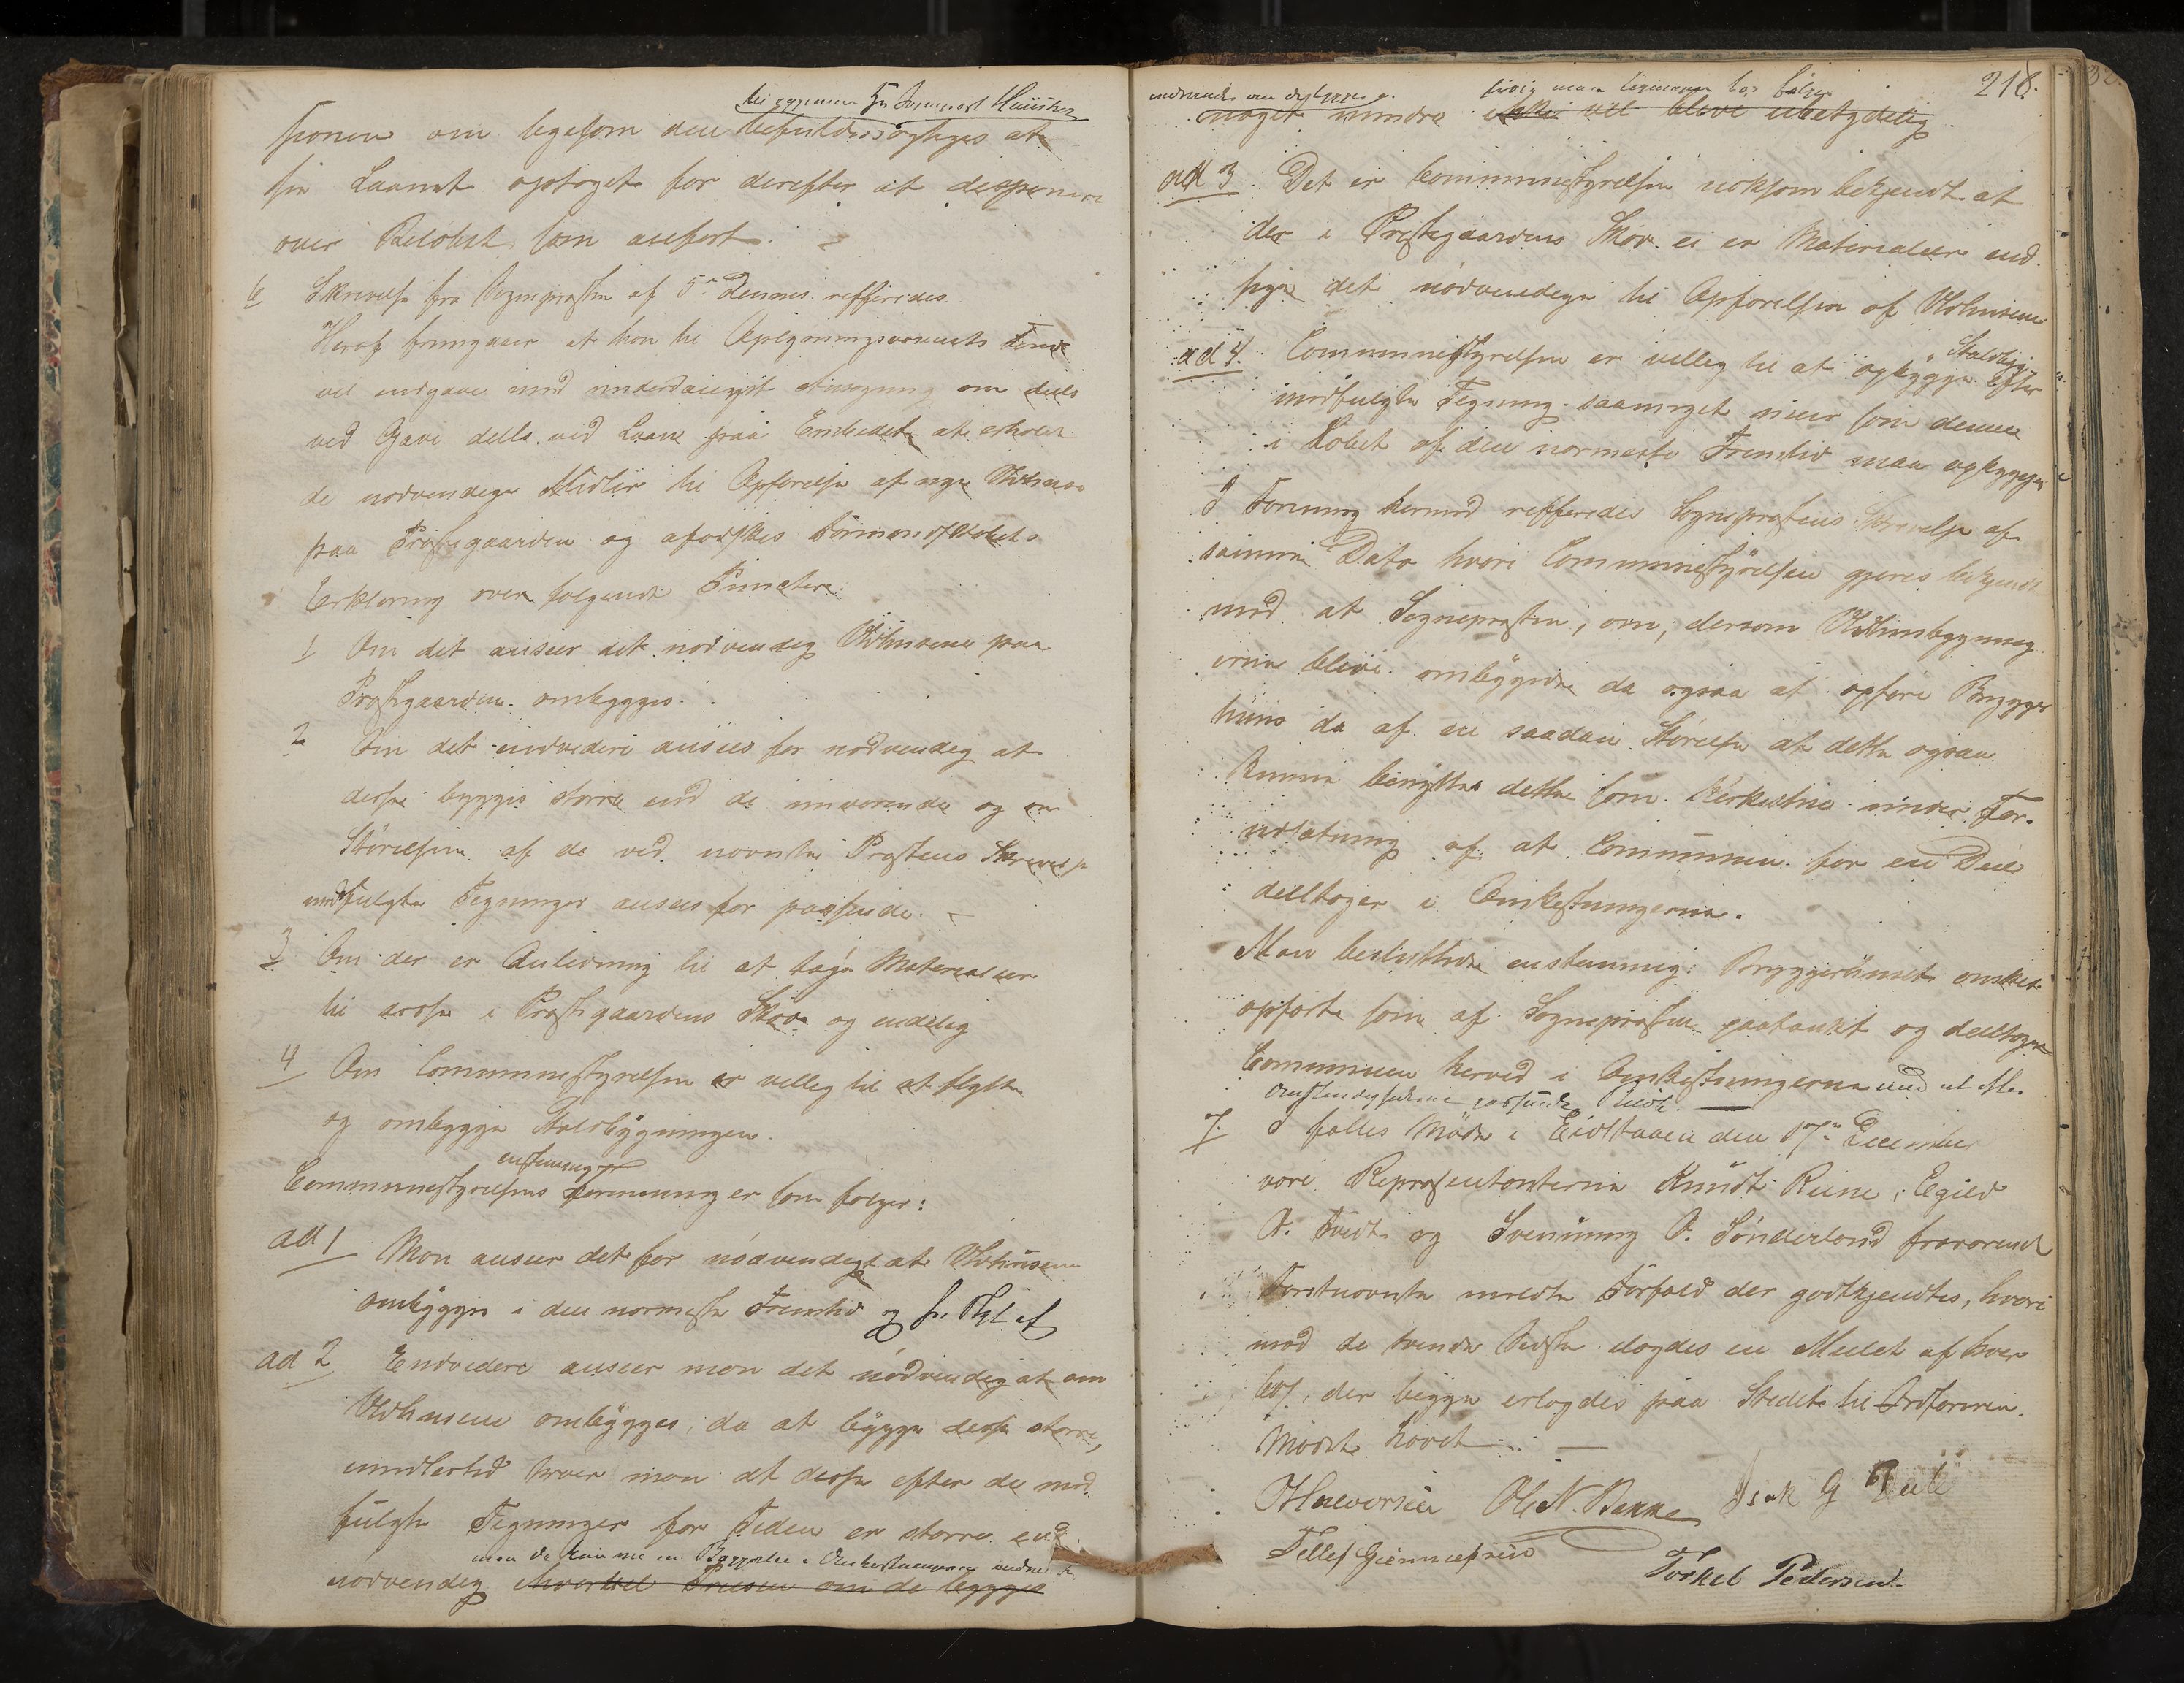 sionen om ligesom den befuldmægtiges at
faa Laanet optaget for derefter at disponere
over Beløbet som anført.
6 Skrivelse fra Sognepræsten af 5te Dennes refferedes.
Heraf fremgaaer at han til Oplysningsvæsenets Fond
vil indgaae med underdanigst Ansøgning om deels
ved Gave deels ved Laan paa Embedet at erholde
de nødvendige Midler til Opførelse af nye Vaahuse
paa Præstegaarden og afæskes Formandskabets
Erklæring over følgende Puncter:
1 Om det anseer det nødvendig Vaahusene paa
Præstegaarden ombygges.
2 Om det endvidere ansees for nødvendig at
disse bygges større end de nuværende og om
Størelsen af de ved nævnte Præstens Skrivelse
medfulgte Tegninger ansees for passende.
3 Om der er Anledning til at tage Materialier
til disse i Præstegaardens Skov og endelig
4 Om Communestyrelsen er villig til at flytte
og ombygge Staldbygningen.
enstemmig
Communestyrelsens Formening er som følger:
ad 1 Man anseer det for nødvendigt at Vaahusene
ombygges i den nærmeste Fremtid og
ad 2 Endvidere anseer man det nødvendig at om
Vaahusene ombygges, da at bygge disse større,
imidlertid troer man at disse efter de med
fulgte Tegninger for Tiden er større end
nødvendig om de bygges
218.
noget mindre ikke vil blive ubetydelig
ad 3 Det er Communestyrelsen noksom bekjendt at
der i Præstegaardens Skov ei er Materialier end
sige det nødvendige til Opførelsen af Vaahusene
Staldbyg
ad 4. Communestyrelsen er villig til at opbygge efter
medfulgte Tegning saameget meer som denne
i Løbet af den nærmeste Fremtid maa opbygges
I Forening hermed refferedes Sognepræstens Skrivelse af
samme Dato hvori Communestyrelsen gjøres bekjendt
med at Sognepræsten, om, dersom Vaahusbygning
erne blive ombyggede da ogsaa at opføre Brygger
huus da af en saadan Størelse at dette ogsaa
kunne benyttes dette som Kirkestue under For-
udsætning af at Communen for en Deel
deeltager i Omkostningerne.
Man besluttede enstemmig: Bryggerhuset ønskes
opført som af Sognepræsten paatænkt og deeltager
Communen herved i Omkostningerne med et efter
Omstændighederne passende Beløb.
7. I fælles Møde i Eidstaaen den 17de December
vare Repræsentanterne Knudt Riine, Egild
O. Tvedt og Svenning O. Sønderland fraværende
Førstnævnte meldte Forfald der godkjendtes, hvori
mod de tvende Sidste ilagdes en Mulct af hver
der begge erlagdes paa Stedet til Ordføreren.
Mødet hævet.
Halvorsen Ole N. Bakke Isak G
Tellef
Torkel Pedersen